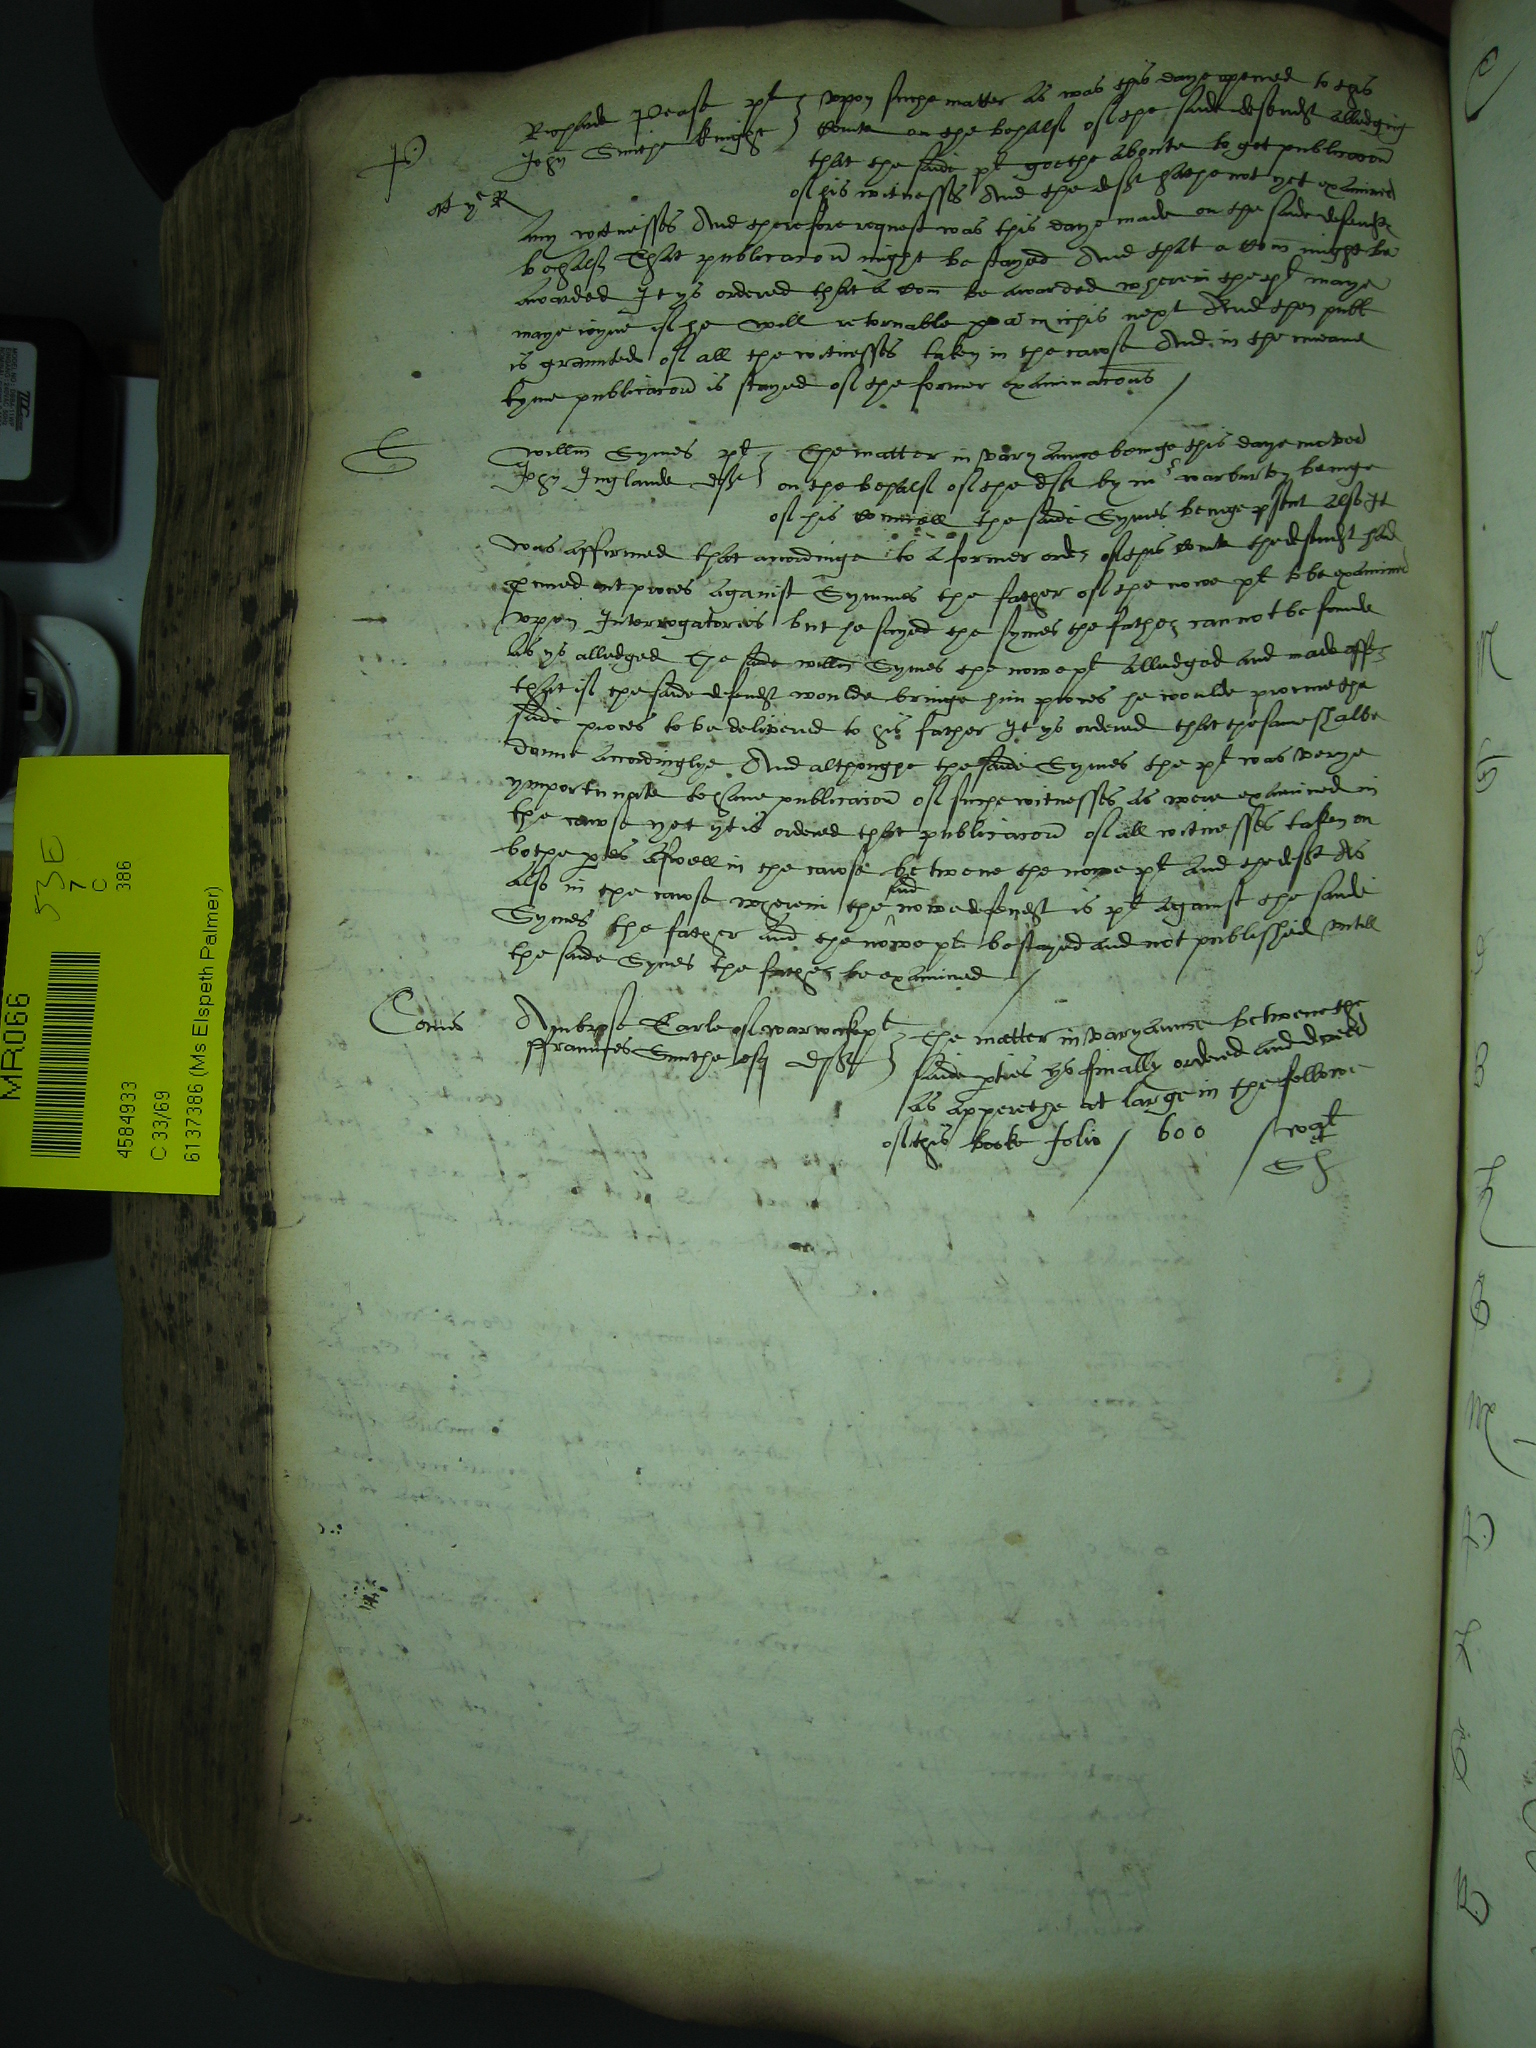 P
Richarde Pease plt
John Smithe knight
Att ye R
Upon suche matter as was this daye opened to this
Courte on the behalf of the saide defendt alledging
that the saide plt goethe aboute to get publicacon
of his witnesses And the deft hathe not yet examined
any witnesses And therefore request was this daye made on the saide defendtes
behalf That publicacon might be stayed And that a Com might be
awarded It ys ordered that a Com be awarded wherein the plt maye
maye ioyne if he will retornable Michis next And then publ
is graunted of all the witnesses taken in the cawse And in the meane
tyme publicacon is stayed of the former examinacons
S
Willm Symes plt
John Inglande deft
The matter in varyaunce beinge this daye moved
on the behalf of the deft by mr warburton beinge
of his councell the saide Symes beinge psent also It
was affirmed that accordinge to a former order of this courte the defendt had
sued out proces against Symmes the father of the nowe plt to be examined
vpon Interrogatories but he sayed the symes the father cannot be founde
as ys alledged The saide willm Symes the nowe plt alledged and made
that if the saide defendt woulde bringe him proces he woulde procure the
saide proces to be delivered to his father It ys ordered that the same shalbe
donne accordinglye And althoughe the saide Symes the plt was verye
ymportunate to have publicacon of suche witnesses as were examined in
the cawse yet yt is ordered that publicacon of all witnesses taken on
bothe ptes aswell in the cawse betwene the nowe plt and the deft As
also in the cawse wherein the said nowe defendt is plt against the saide
Symes the father and the nowe plt be stayed and not publisshed vntill
the saide Symes the father be examined
Comes
Ambrose Earle of warwicke plt
ffraunces Smithe esq deft
The matter in varyaunce betwene the
saide pties ys finally ordered and decreed
as apperethe at large in the followe
of this booke folio 600
MR066
4584933
C 33/69
6137386 (Ms Elspeth Palmer)
53E
7
C
386